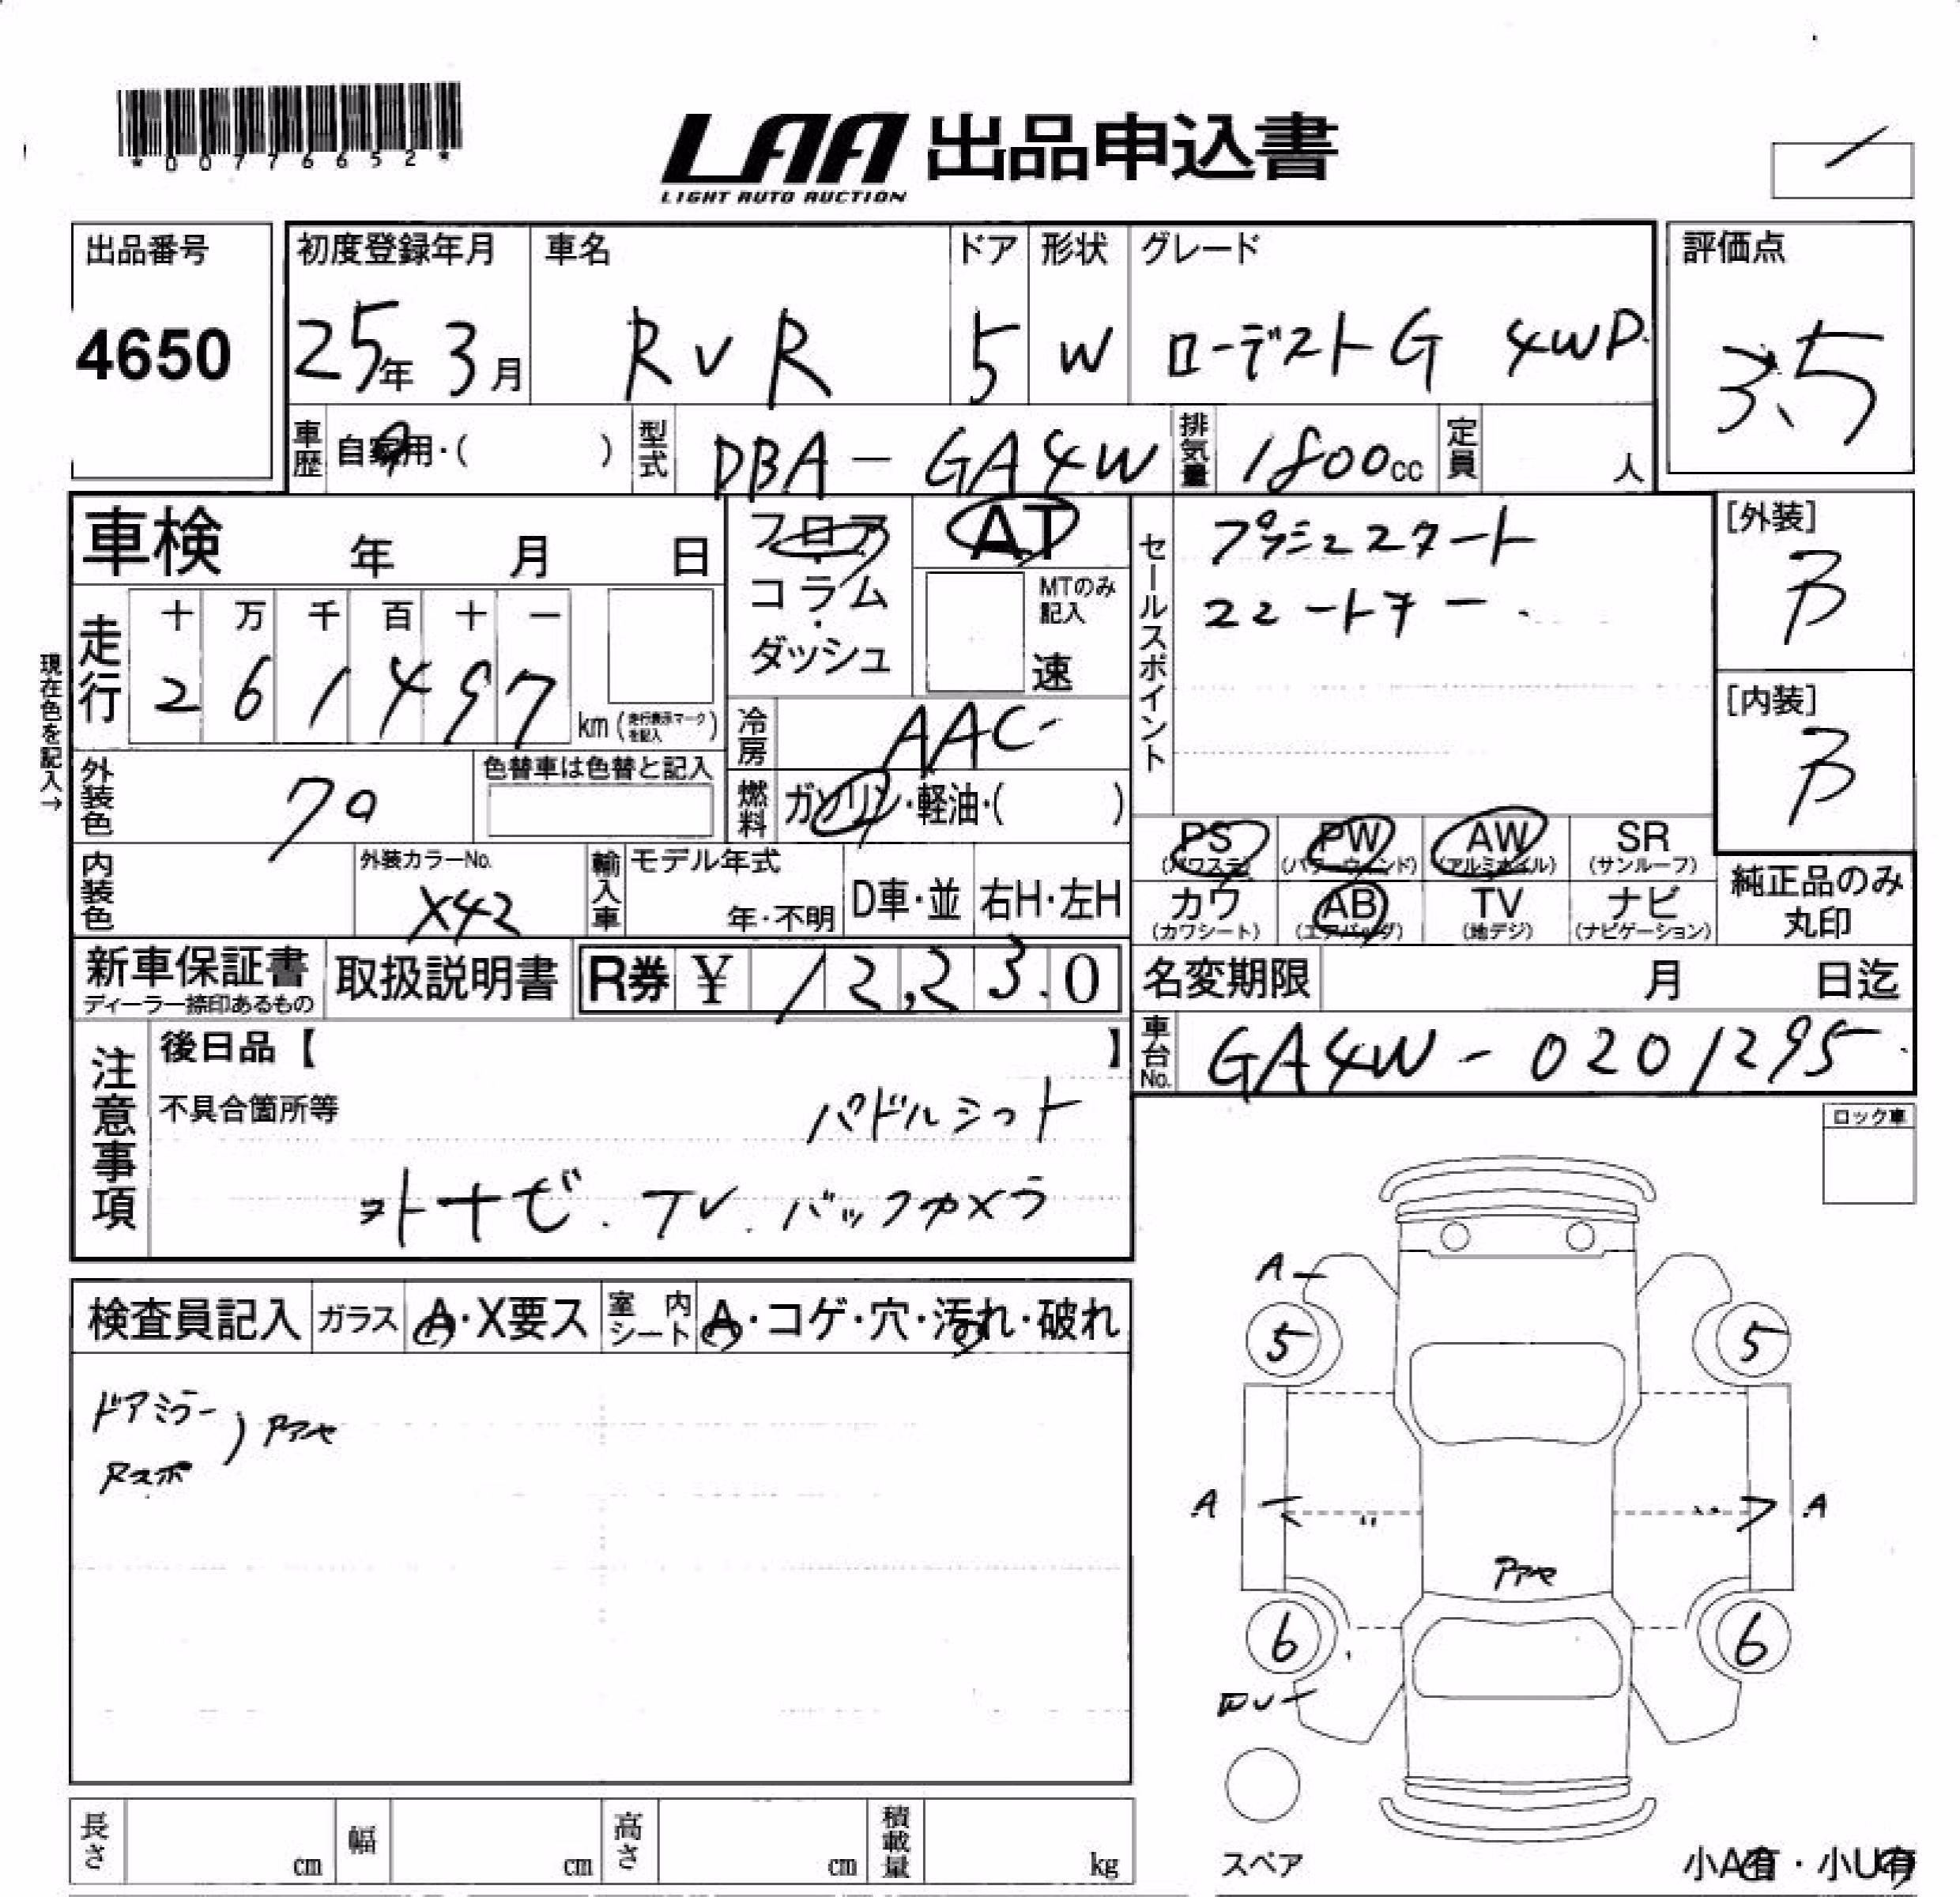 *00776652*
LAA 出品申込書
LIGHT AUTO AUCTION
出品番号
4650
初度登録年月
25年 3月
車名
RVR
ドア
5
形状
W
グレード
ローデストG 4WD
評価点
3.5
車歴
自家用・( )
型式
DBA-GA4W
排気量
1800cc
定員
人
車検 年 月 日
フロア・コラム・ダッシュ
AT
MTのみ記入
速
セールスポイント
プッシュスタート
スマートキー
[外装]
B
[内装]
B
現在色を記入→
走行
十 万 千 百 十 一
2 6 1 4 9 7 km (走行表示マークを記入)
冷房
AAC
燃料
ガソリン・軽油・( )
外装色
クロ
色替車は色替と記入
内装色
外装カラーNo.
X42
輸入車
モデル年式
年・不明
D車・並
右H・左H
PS (パワステ)
PW (パワーウィンド)
AW (アルミホイル)
SR (サンルーフ)
カワ (カワシート)
AB (エアバッグ)
TV (地デジ)
ナビ (ナビゲーション)
純正品のみ丸印
新車保証書
ディーラー捺印あるもの
取扱説明書
R券 ¥ 12,230
名変期限 月 日迄
車台No.
GA4W-0201295
注意事項
後日品【 】
不具合箇所等
パドルシフト
ナビ.TV.バックカメラ
ロック車
検査員記入
ガラス
A・X要ス
室内シート
A・コゲ・穴・汚れ・破れ
ドアミラー
Rスポ
A
5
5
A
A
6
6
スペア
長さ cm
幅 cm
高さ cm
積載量 kg
小A有・小U有